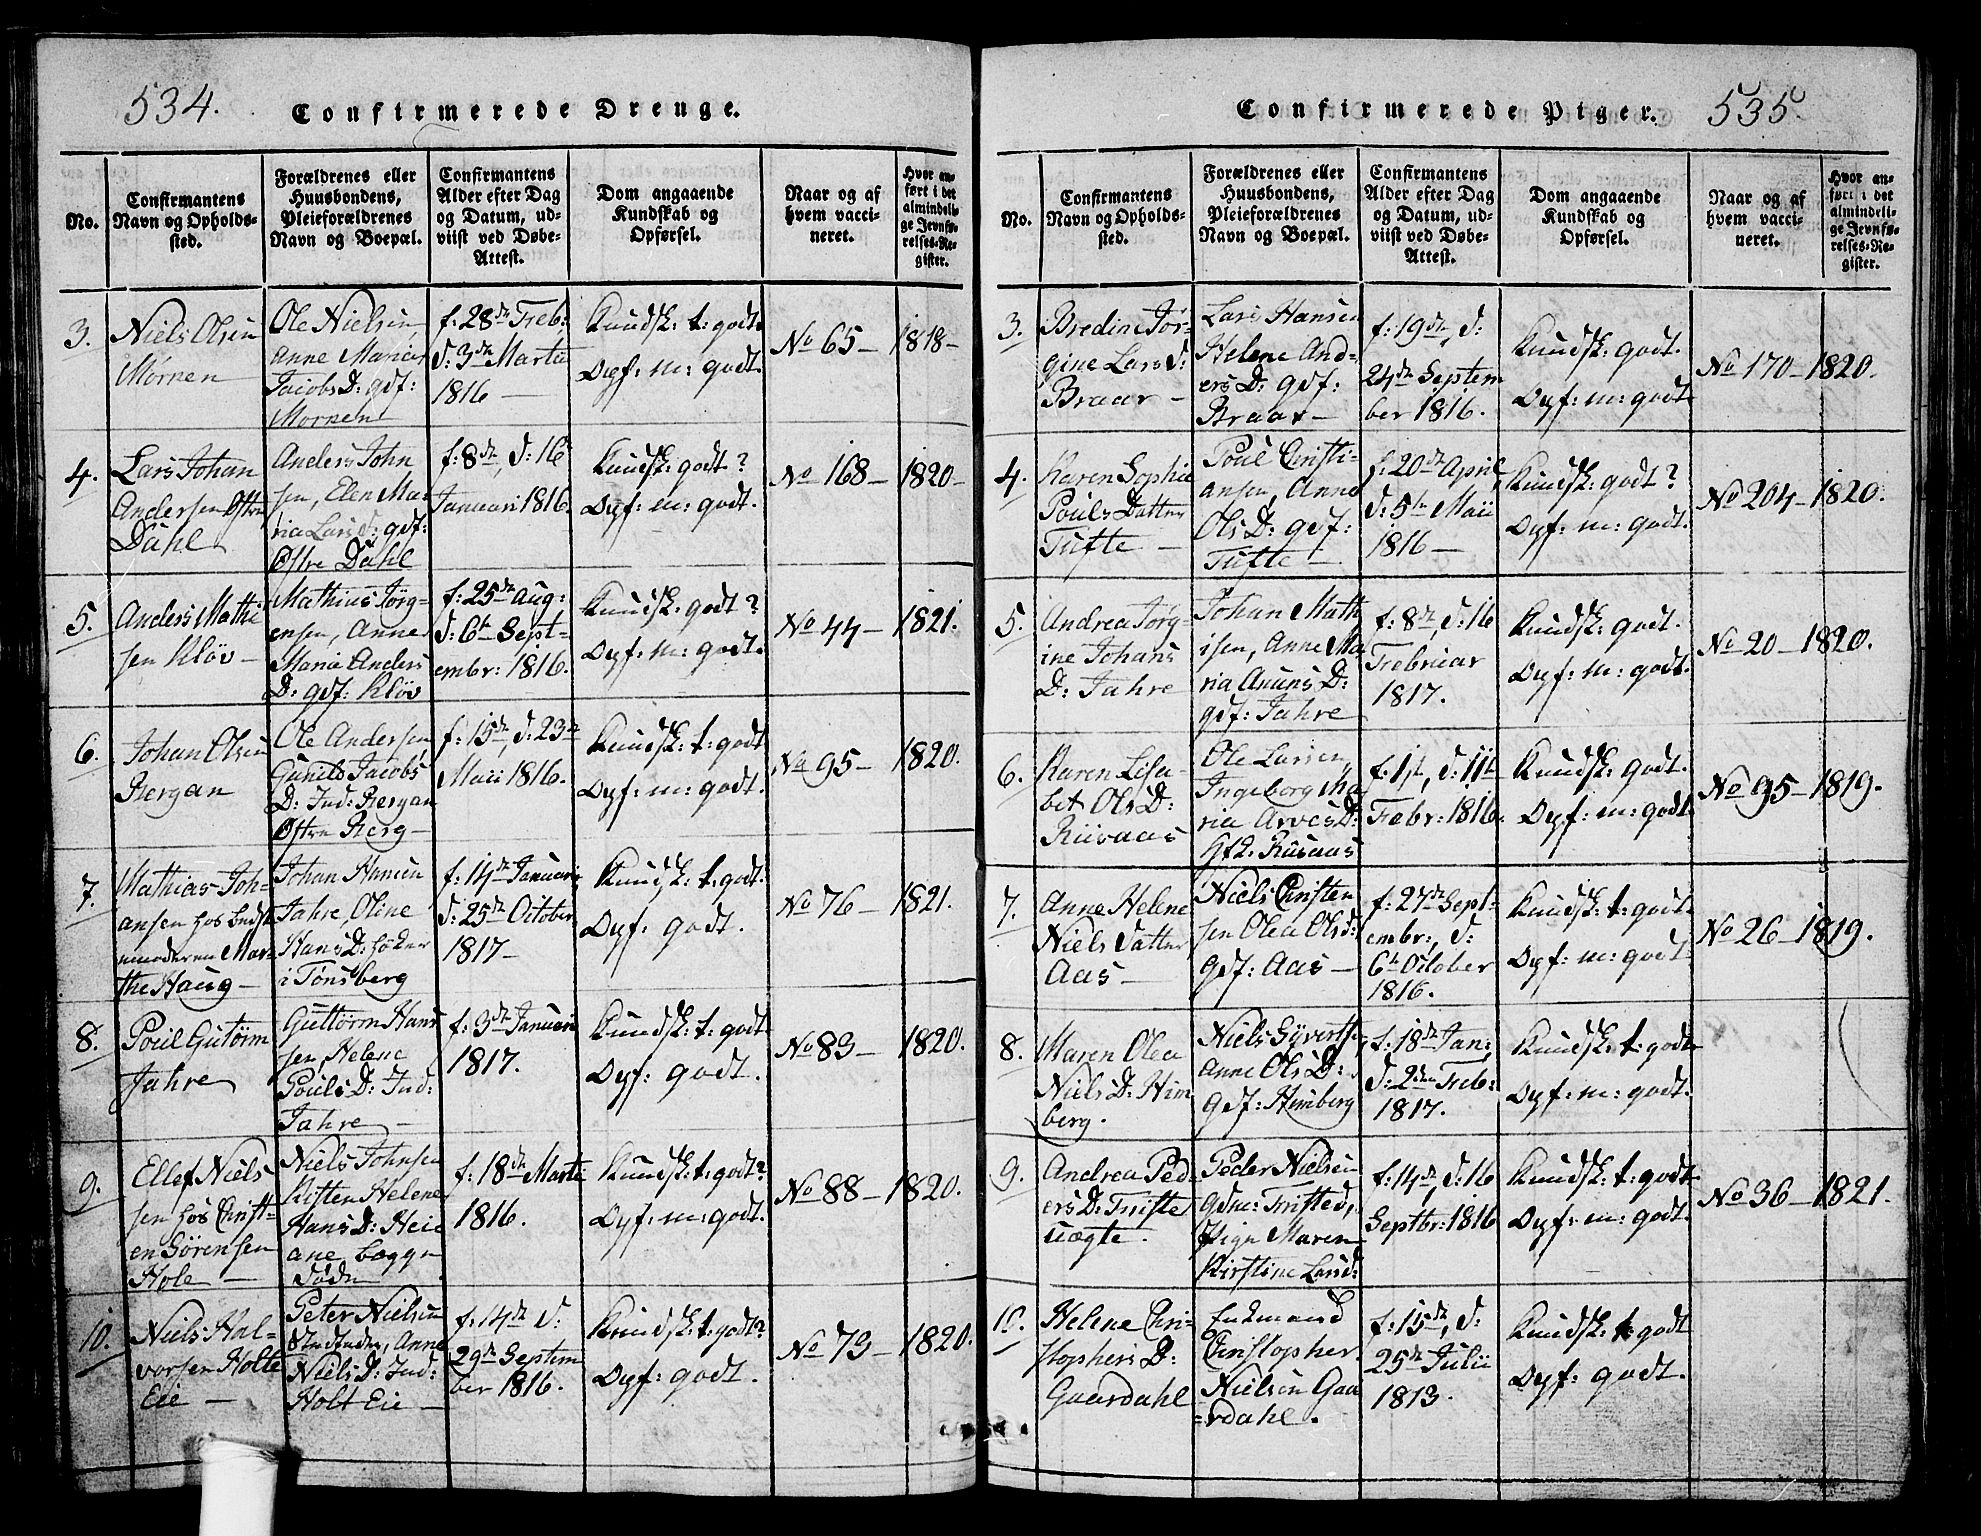 534.
Confirmerede Drenge.
No.
Confirmantens
Navn og Opholds-
sted.
Forældrenes eller
Huusbondens,
Pleieforældrenes
Navn og Boepæl.
Confirmantens
Alder efter Dag
og Datum, ud-
viist ved Døbe-
Attest.
Dom angaaende
Kundskab og
Opførsel.
Naar og af
hvem vacci-
neret.
Hvor an-
ført i det
almindeli-
ge Jevnfø-
relses-Re-
gister.
3.
Niels Olsen
Mørnen
Ole Nielsen
Anne Maria
Jacobs D: gdf:
Mørnen
f: 28de Febr:
d: 3de Martii
1816 —
Kundsk: t: godt.
Opf: m: godt.
No 65 — 1818 —
4.
Lars Johan
Andersen Østre
Dahl
Anders John
sen, Elen Ma-
ria Lars d: gdf:
Østre Dahl
f: 8de, d: 16
Januari 1816.
Kundsk: godt?
Opf: m: godt.
No 168 — 1820 —
5.
Anders Mathi
sen Kløv —
Mathius Jørg-
ensen, Anne
Maria Anders
D: gdf: Kløv
f: 25de Aug:
d: 6te Sept-
embr: 1816.
Kundsk: godt?
Opf: m: godt.
No 44 — 1821.
6.
Johan Olsen
Bergan
Ole Andersen,
Gunild Jacobs
D: Ind: Bergan
Østre Berg —
f: 15de d: 23de
Maii 1816.
Kundsk: t: godt
Opf: m: godt.
No 95 — 1820.
7.
Mathias Joh-
ansen hos Bedste
moderen Mar-
the Haug —
Johan Hansen
Jahre, Oline
Hans D: høker
i Tønsberg
f: 14de Januari,
d: 25de October
1817 —
Kundsk: t: godt.
Opf: godt.
No 76 — 1821.
8.
Poul Gutørm
Jahre
Guttorm Hans
sen Helene
Pouls D: Ind:
Jahre —
f: 3de Januari
1817.
Kundsk: t: godt
Opf: godt.
No 83 — 1820.
9.
Ellef Niels
sen hos Christ-
en Sørensen
Hole —
Niels Johnsen
Kisten Helene
Hans D: Heie
ane begge
døde
f: 18de Martii
1816.
Kundsk: t: godt?
Opf: m: godt.
No 88 — 1820.
10.
Niels Hal-
vorsen Holte
Eie —
Peter Nielsen
Anne
Niels D: Ind:
Holt Eie —
f: 14de d:
29de Septem
ber 1816.
Kundsk: t: godt?
Opf: godt.
No 73 — 1820.
535.
Confirmerede Piger.
No.
Confirmantens
Navn og Opholds-
sted.
Forældrenes eller
Huusbondens,
Pleieforældrenes
Navn og Boepæl.
Confirmantens
Alder efter Dag
og Datum, ud-
viist ved Døbe-
Attest.
Dom angaaende
Kundskab og
Opførsel.
Naar og af
hvem vacci-
neret.
Hvor an-
ført i det
almindeli-
ge Jevnfø-
relses-Re-
gister.
3.
Bredine Jør-
gine Lars d:
Braar —
Lars Hansen
Helene And-
ers D: gdf:
Braar —
f: 19de, d:
24de Septem
ber 1816.
Kundsk: godt.
Opf: m: godt
No 170 — 1820.
4.
Karen Sophie
Pouls Datter
Tufte —
Poul Christi-
ansen, Anne
Ols D: gdf:
Tufte —
f: 20de April,
d: 5te Maii
1816 —
Kundsk: godt?
Opf: m: godt.
No 204 — 1820.
5.
Andrea Jørg-
ine Johans
D: Jahre
Johan Math
isen, Anne Ma
ria Anuns D:
gdf: Jahre
f: 8de, d: 16
Februar
1817.
Kundsk: godt.
Opf: m: godt.
No 20 — 1820.
6.
Karen Lisa-
bet Ols D:
Riisaas
Ole Larsen,
Ingeborg Ma
ria Arves D:
Gfd: Riisaas
f: 1st, d: 11te
Febr: 1816.
Kundsk: godt.
Opf: m: godt.
No 95 — 1819.
7.
Anne Helene
Niels Datter
Aas —
Niels Christen
sen Olea Ols d:
Gdf: Aas —
f: 27de Sept-
embr:, d:
6te October
1816.
Kundsk: t: godt.
Opf: m: godt.
No 26 — 1819.
8.
Maren Olea
Niels D: Him
berg.
Niels Syverts,
Anne Ols D:
Gdf: Himberg
f: 18de Jan:
d: 2den Febr:
1817.
Kundsk: t: godt
Opf: m: godt.
9.
Andrea Ped-
ers D:
uægte.
Peder Nielsen
pige Maren
Kirstine Lars d:
f: 14de, d: 16
Septbr: 1816
Kundsk: t: godt
Opf: m: godt.
No 36 — 1821.
10.
Helene Chri-
stophers D:
Gaardahl
Enkemand
Christopher
Nielsen Gaa
=rdahl.
f: 15de, d:
25de Julii
1813.
Kundsk: t: godt
Opf: godt.